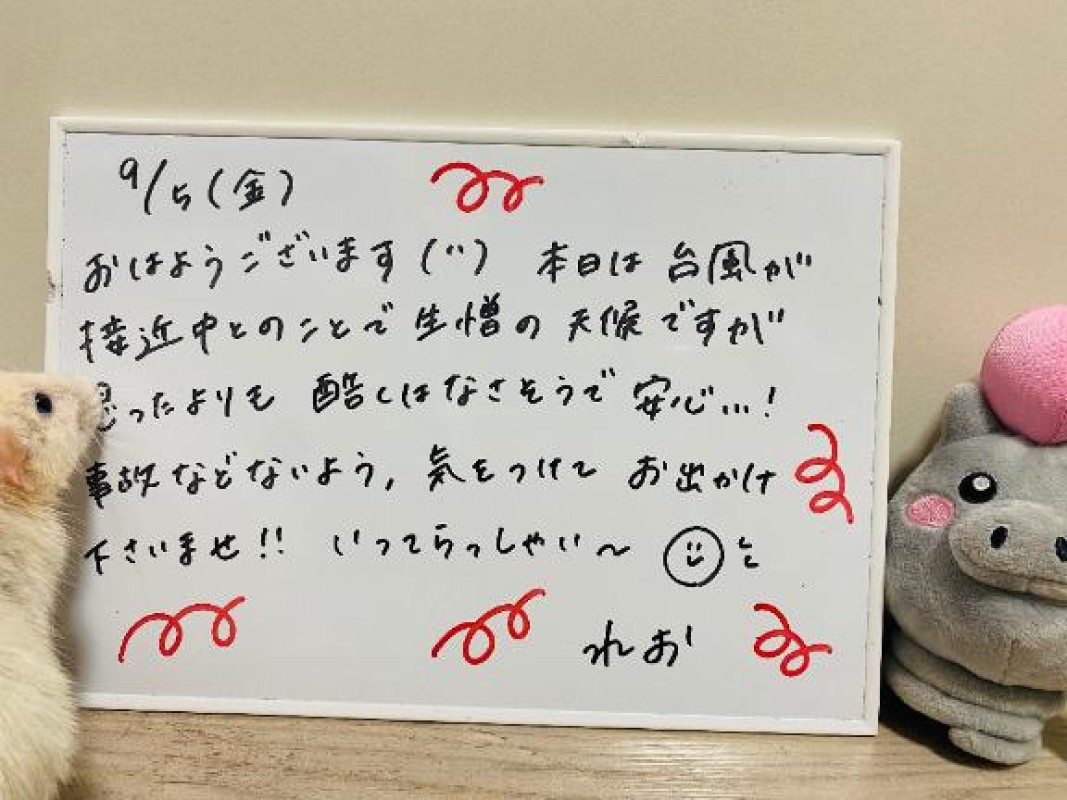 9/5(金)
おはようございます(¨) 本日は台風が
接近中とのことで生憎の天候ですが
思ったよりも 酷くはなさそうで 安心…!
事故などないよう, 気をつけて お出かけ
下さいませ!! いってらっしゃい〜
れお